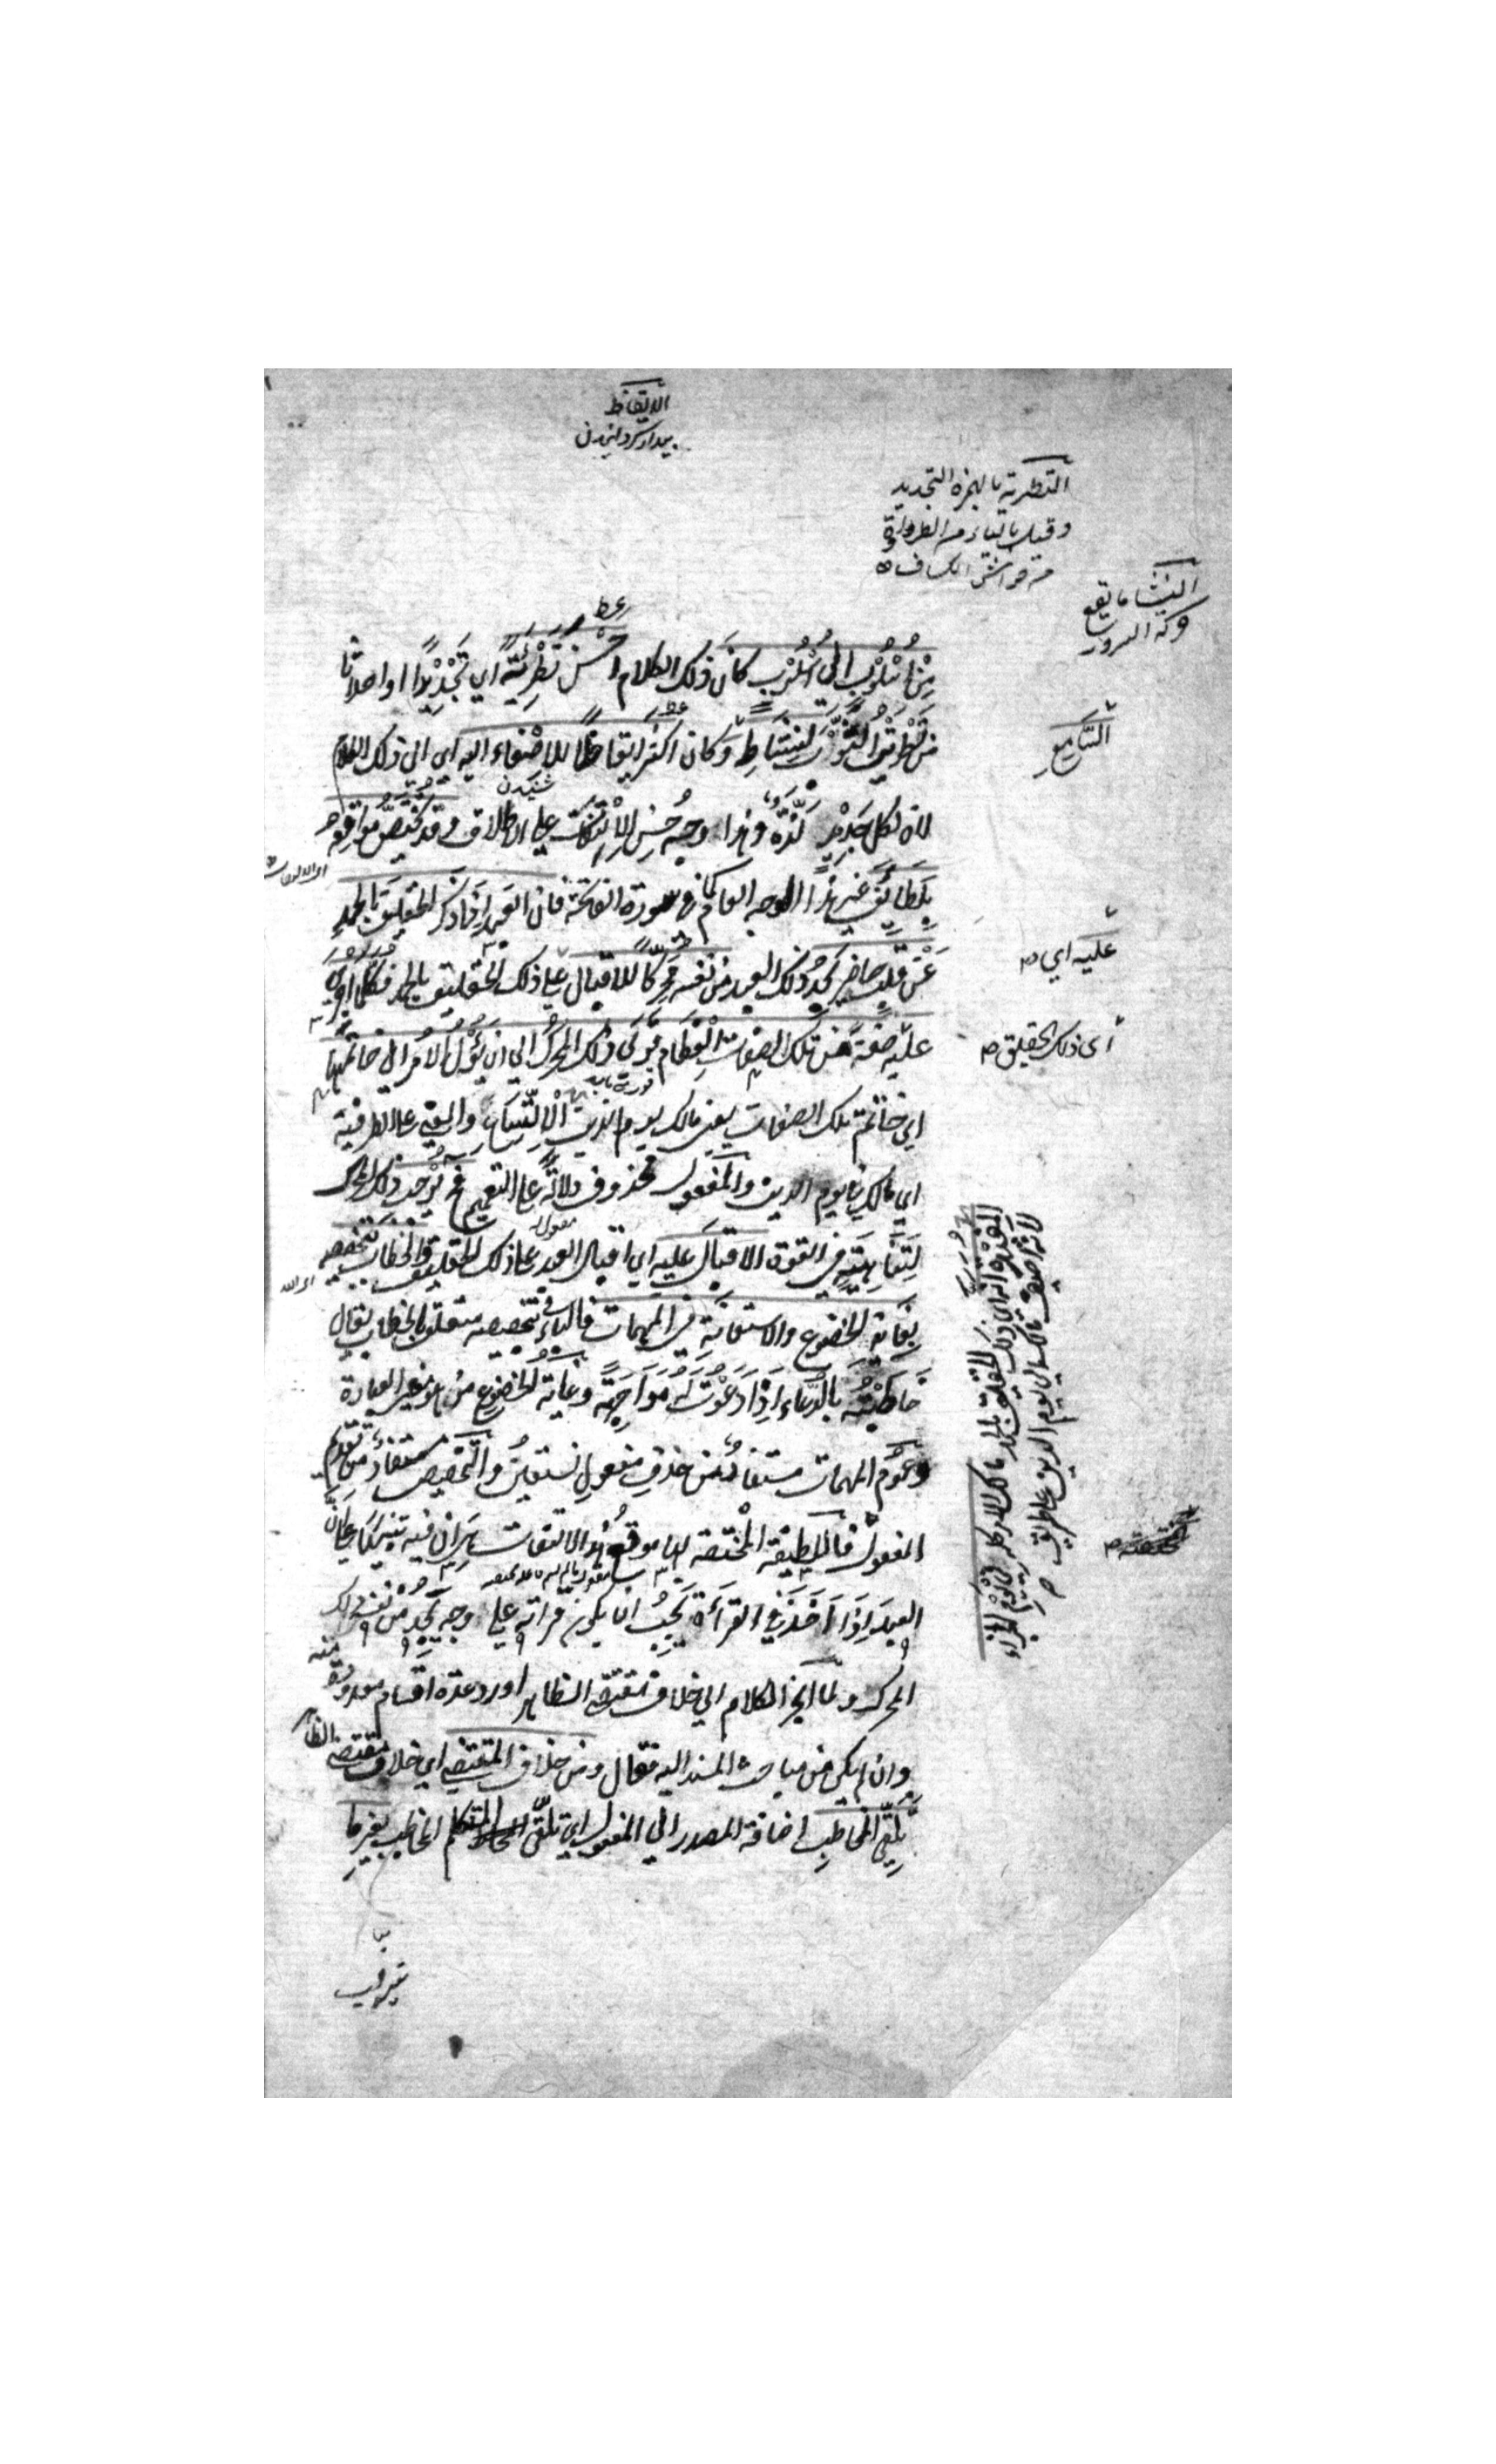 الايقاظ
بيدار كردانيدن
التطرية بالهمزة التجديد
وقيل بالياء من الطراوة
من حواشي الكشاف
النشا ما يقع
السرور
السامع
من اسلوب الي اسلوب كان ذلك الكلام احسن تطرئة اي تجديدا او احداثا
من طريت الثوب لنشاط وكان اكثر ايقاظا للاصغاء اليه اي الي ذلك الكلام
شنيدن
لان لكل جديد لذة وهذا وجه حسن الالتفات علي الاطلاق وقد تختص مواقعه
بلطائف غير هذا الوجه العام كما في سورة الفاتحة فان العبد اذا ذكر الحقيق بالحمد
عن قلب حاضر يجد ذلك العبد من نفسه محركا للاقبال علي ذلك الحقيق بالحمد فكلما اجري
عليه اي
عليه صفة من تلك الصفات العظام قوي ذلك المحرك الي ان يؤل الامر الي خاتمتها
اي ذلك الحقيق
اي خاتمة تلك الصفات يعني مالك يوم الدين الاتساع والمعني علي الظرفية
اي مالك في يوم الدين والمفعول محذوف دلالة علي التعميم فح يوجب ذلك المحرك
لتناهيه في القوة الاقبال عليه اي اقبال العبد علي ذلك الحقيق والخطاب بتخصيصه
بغاية الخضوع والاستعانة في المهمات فالباء في بتخصيصه متعلق بالخطاب يقال
خاطبته بالدعاء اذا دعوت له مواجهة وغاية الخضوع هو معني العبادة
وعموم المهمات مستفاد من حذف مفعول نستعين والتخصيص مستفاد من تقديم
المفعول فاللطيفة المختصة بها موقع هذا الالتفات هي ان فيه تنبيها علي ان
العبد اذا اخذ في القراءة يجب ان يكون قراته علي وجه يجد من نفسه ذلك
المحرك ولما انجر الكلام الي خلاف مقتضي الظاهر اورد عدة اقسام منه
وان لم يكن من مباحث المسند اليه فقال ومن خلاف المقتضي اي خلاف مقتضي الظاهر
تلقي المخاطب اضافة المصدر الي المفعول اي تلقي المتكلم المخاطب بغير ما
يترقب